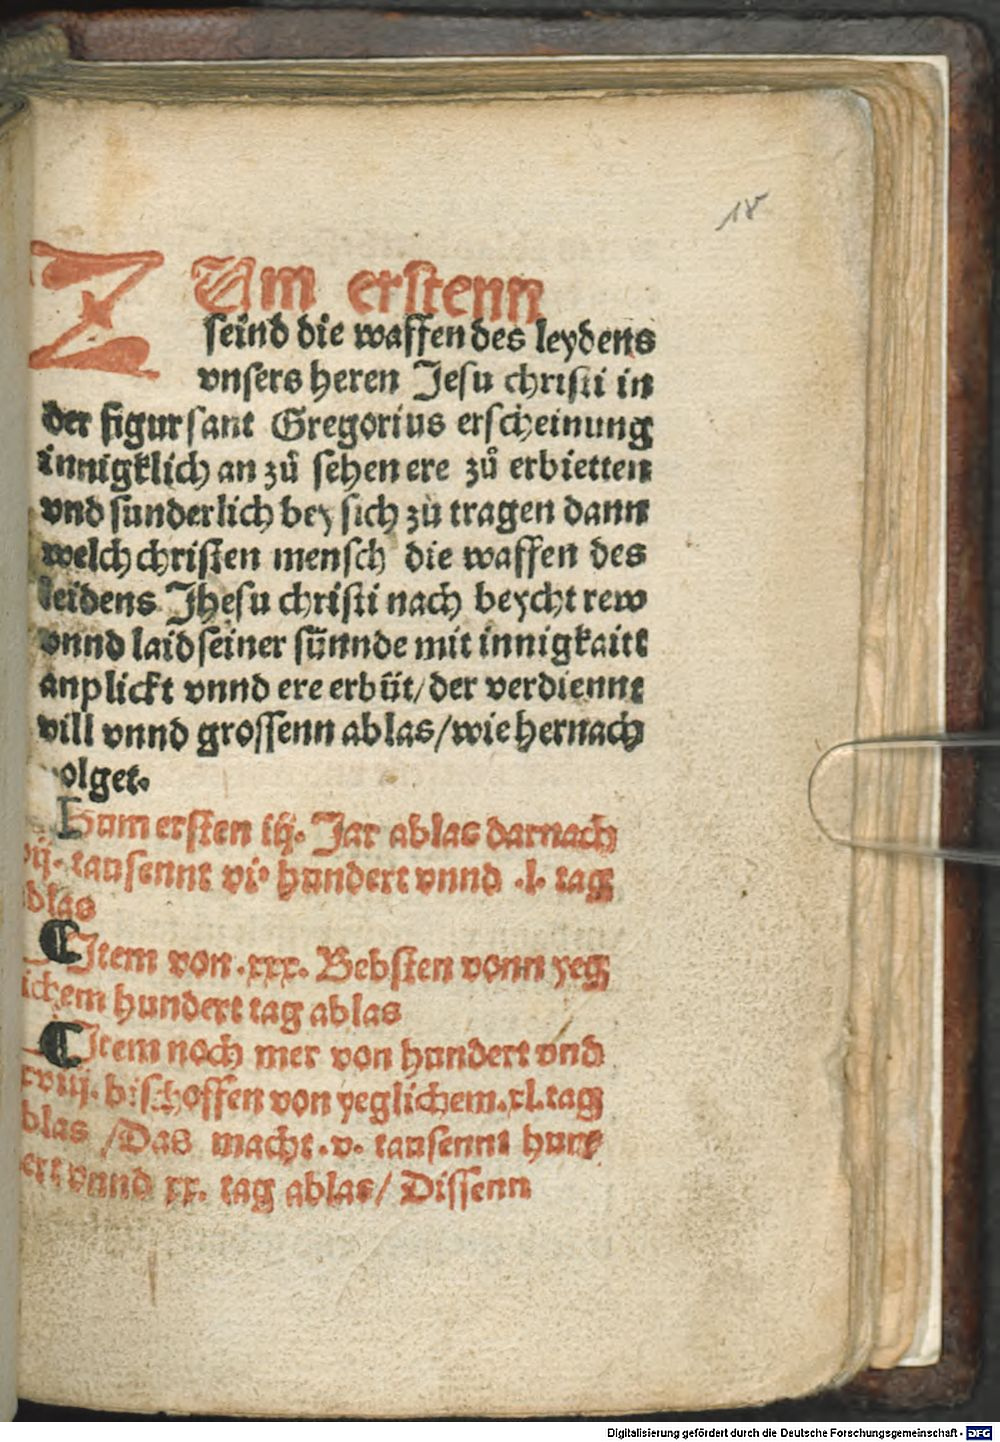 18
ZUm erstenn
seind die waffen des leydens
vnsers heren Jesu christi in
der figur sant Gregorius erscheinung
innigklich an zů sehen ere zů erbietten
vnd sunderlich bey sich zů tragen dann
welch christen mensch die waffen des
leidens Jhesu christi nach beycht rew
vnnd laid seiner sünnde mit innigkaitt
anplickt vnnd ere erbüt/ der verdiennt
vill vnnd grossenn ablas/ wie hernach
volget.
Zum ersten iij. Jar ablas darnach
vij. tausennt vi. hundert vnnd .l. tag
ablas
Item von .xxx. Bebsten vonn yeg
lichem hundert tag ablas
Item noch mer von hundert vnd
xviij. bischoffen von yeglichem .xl. tag
ablas /Das macht .v. tausennt hun
dert vnnd xx. tag ablas/ Dissenn
Digitalisierung gefördert durch die Deutsche Forschungsgemeinschaft - DFG